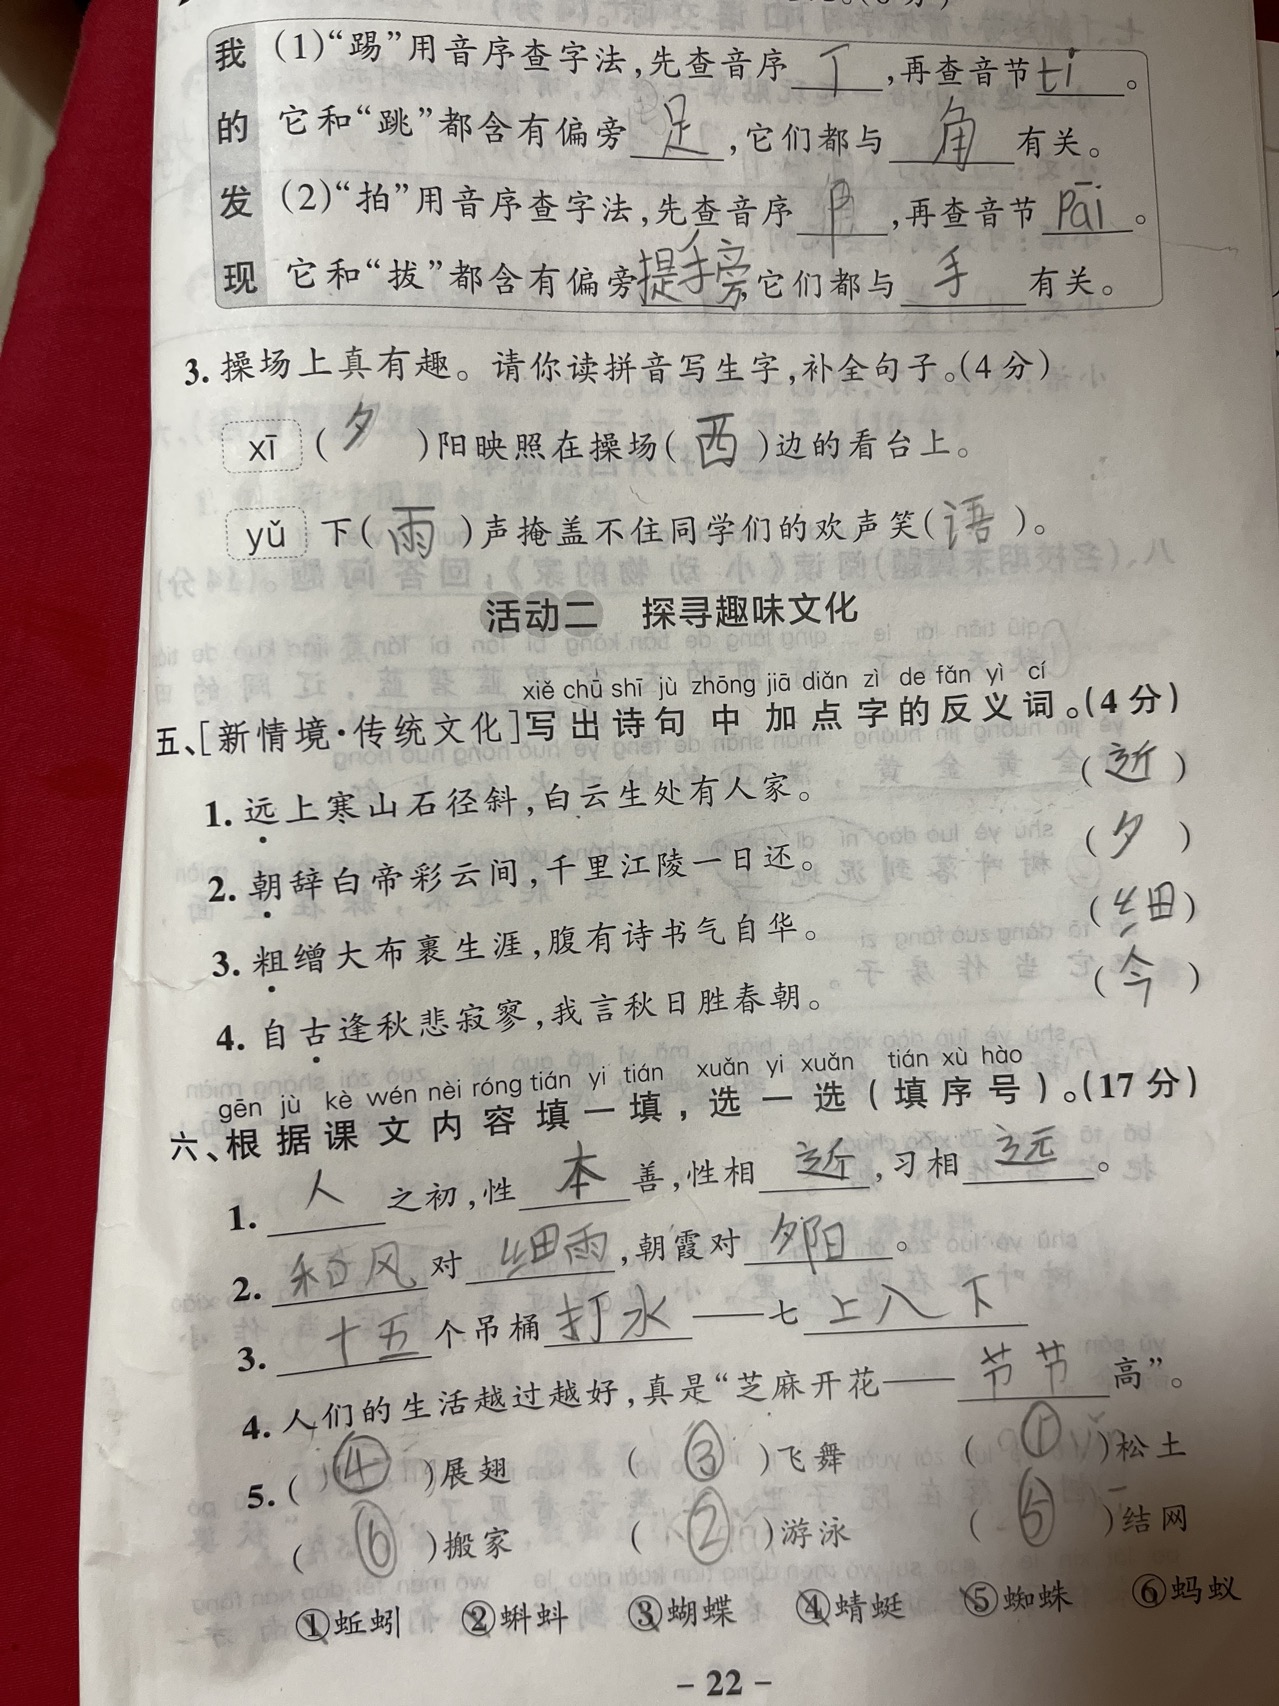 我的发现
(1)“踢”用音序查字法,先查音序 丁 ,再查音节 tī 。
它和“跳”都含有偏旁 足 ,它们都与 角 有关。
(2)“拍”用音序查字法,先查音序 ,再查音节 pāi 。
它和“拔”都含有偏旁 提手旁 ,它们都与 手 有关。
3. 操场上真有趣。请你读拼音写生字,补全句子。(4分)
xī ( 夕 )阳映照在操场( 西 )边的看台上。
yǔ 下( 雨 )声掩盖不住同学们的欢声笑( 语 )。
活动二 探寻趣味文化
xiě chū shī jù zhōng jiā diǎn zì de fǎn yì cí
五、[新情境·传统文化]写出诗句中加点字的反义词。(4分)
1. 远上寒山石径斜,白云生处有人家。 ( 近 )
2. 朝辞白帝彩云间,千里江陵一日还。 ( 夕 )
3. 粗缯大布裹生涯,腹有诗书气自华。 ( 细 )
4. 自古逢秋悲寂寥,我言秋日胜春朝。 ( 今 )
gēn jù kè wén nèi róng tián yi tián xuǎn yi xuǎn tián xù hào
六、根据课文内容填一填,选一选(填序号)。(17分)
1. 人 之初,性 本 善,性相 近 ,习相 远 。
2. 和风 对 细雨 ,朝霞对 夕阳 。
3. 十五 个吊桶 打水 ——七 上八下
4. 人们的生活越过越好,真是“芝麻开花—— 节节 高”。
5. ( ④ )展翅 ( ③ )飞舞 ( ① )松土
( ⑥ )搬家 ( ② )游泳 ( ⑤ )结网
①蚯蚓 ②蝌蚪 ③蝴蝶 ④蜻蜓 ⑤蜘蛛 ⑥蚂蚁
- 22 -